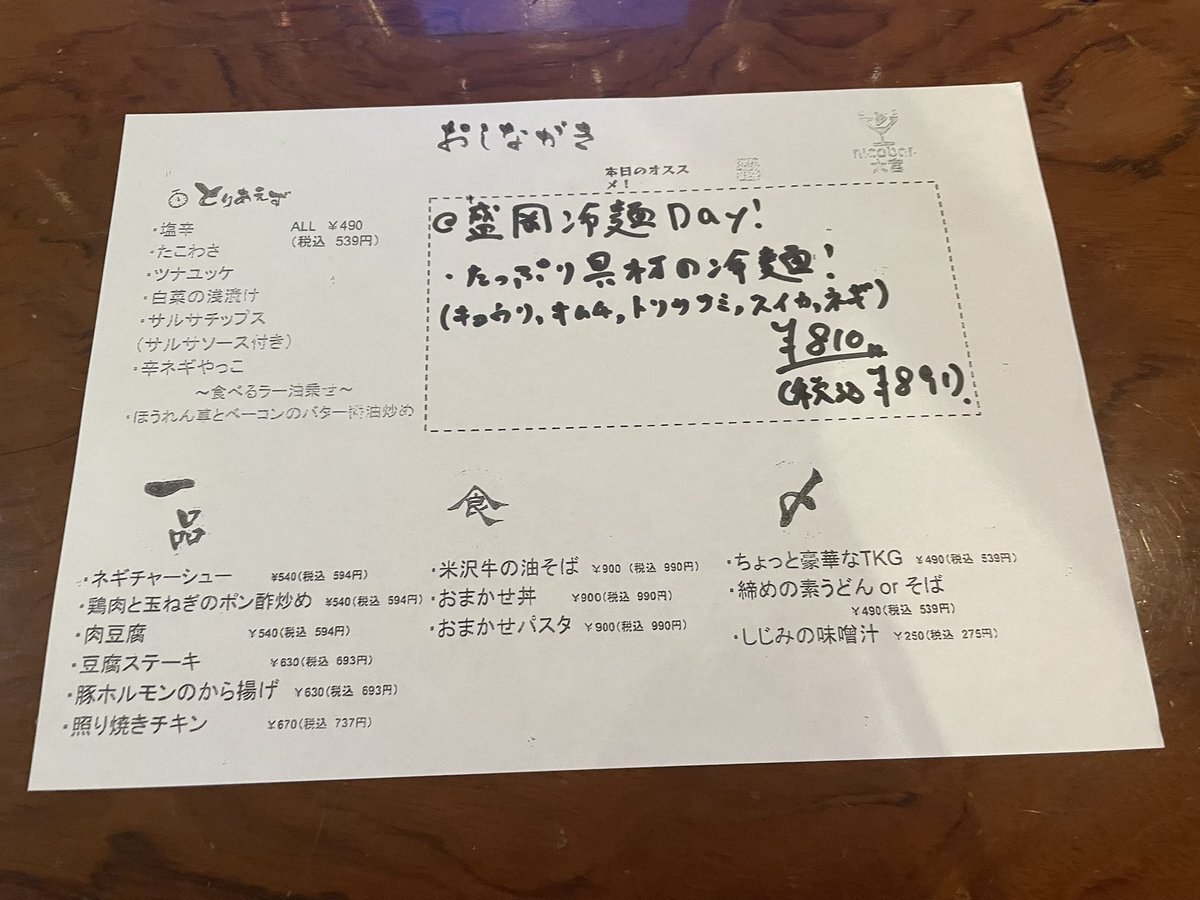 おしながき
nicobar
大宮
とりあえず
・塩辛 ALL ￥490
(税込 539円)
・たこわさ
・ツナユッケ
・白菜の浅漬け
・サルサチップス
(サルサソース付き)
・辛ネギやっこ
～食べるラー油乗せ～
・ほうれん草とベーコンのバター醤油炒め
本日のオスス
メ！
盛岡冷麺Day!
・たっぷり具材の冷麺!
(キュウリ,キムチ,トリササミ,スイカ,ネギ)
￥810
(税込￥891).
一品
・ネギチャーシュー ￥540(税込 594円)
・鶏肉と玉ねぎのポン酢炒め ￥540(税込 594円)
・肉豆腐 ￥540(税込 594円)
・豆腐ステーキ ￥630(税込 693円)
・豚ホルモンのから揚げ ￥630(税込 693円)
・照り焼きチキン ￥670(税込 737円)
食
・米沢牛の油そば ￥900 (税込 990円)
・おまかせ丼 ￥900(税込 990円)
・おまかせパスタ ￥900(税込 990円)
〆
・ちょっと豪華なTKG ￥490(税込 539円)
・締めの素うどん or そば
￥490(税込 539円)
・しじみの味噌汁 ￥250(税込 275円)